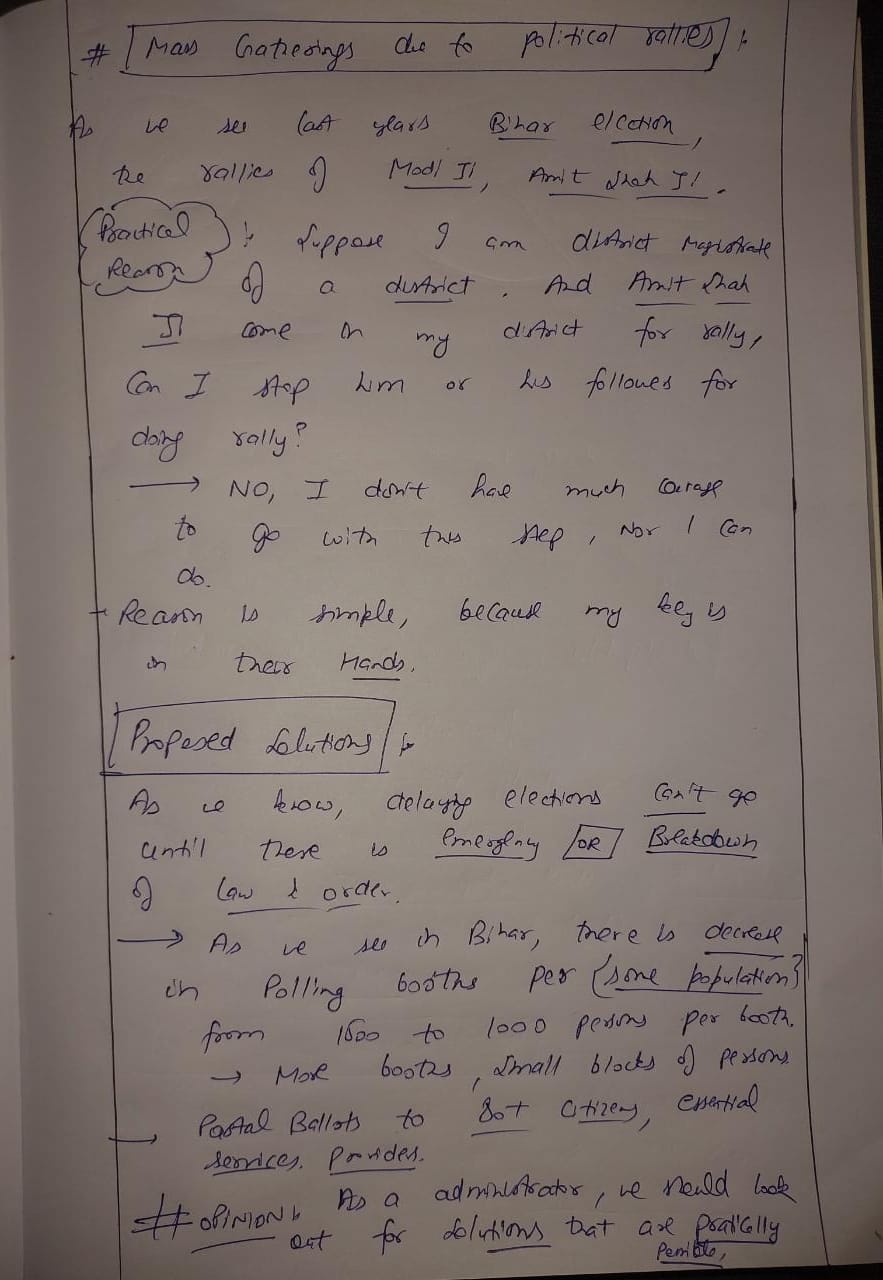 # Mass Gatherings due to political rallies :-
As we see last years Bihar election,
the rallies of Modi Ji, Amit Shah Ji.
Practical Reason :- Suppose I am district Magistrate
of a district. And Amit Shah
Ji come in my district for rally,
Can I stop him or his followes for
doing rally?
→ NO, I don't have much courage
to go with this step, Nor I can
do.
+ Reason is simple, because my key is
in their Hands.
Proposed Solutions :-
As we know, delaying elections can't go
until there is emergency OR Breakdown
of law & order.
→ As we see in Bihar, there is decrease
in Polling booths per {some population}
from 1500 to 1000 persons per booth.
→ More booths, small blocks of persons.
→ Postal Ballots to 80+ citizens, essential
services. Provides.
# OPINION :- As a administrator, we should look
out for solutions that are pratically
possible,